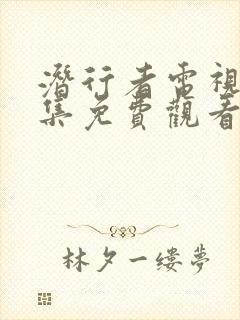 潛行者電視
集免費觀看
林夕一缕夢